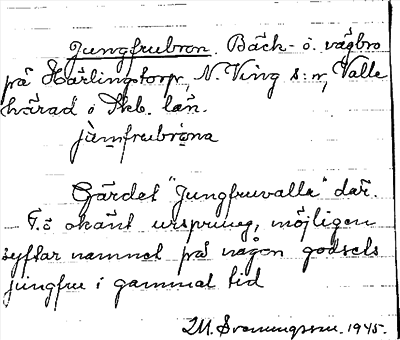 Jungfrubron. Bäck- o. vägbro
på Härlingstorp, N. Ving s:n, Valle
härad i Skb. län.
jùmfrubróna
Gärdet "Jungfruvalla" där.
F.ö okänt ursprung, möjligen
syftar namnet på någon godsets
jungfru i gammal tid
M. 1945.